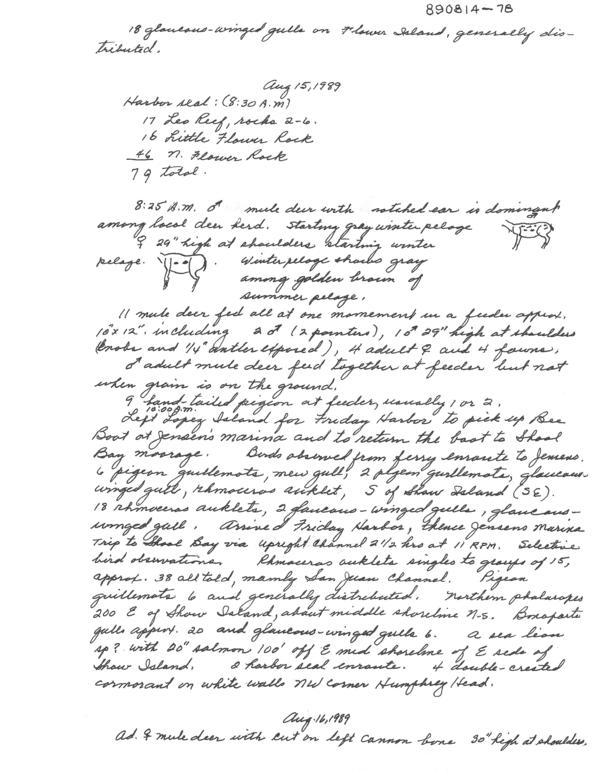 890814-78
18 glaucous-winged gulls on Flower Island, generally dis-
tributed.
Aug 15, 1989
Harbor seal: (8:30 A.M)
17 Leo Reef, rocks 2-6.
16 Little Flower Rock
46 N. Flower Rock
79 total.
8:25 A.M. ♂ mule deer with notched ear is dominant
among local deer herd. Starting gray winter pelage
♀ 29" high at shoulders starting winter
pelage. . Winter pelage shows gray
among golden brown of
summer pelage.
11 mule deer fed all at one momement in a feeder approx.
10"x12". including 2 ♂ (2 pointers), 1 ♂ 29" high at shoulders
(knobs and 1/4" antler exposed), 4 adult ♀ and 4 fawns.
♂ adult mule deer feed together at feeder but not
when grain is on the ground.
9 band-tailed pigeon at feeder, usually 1 or 2.
10:00 A.M.
Left Lopez Island for Friday Harbor to pick up Bee
Boat at Jensens marina and to return the boat to Shoal
Bay moorage. Birds observed from ferry enroute to Jensens.
6 pigeon guillemots, mew gull, 2 pigeon guillemots, glaucous-
winged gull, rhinoceros auklet, S of Shaw Island (SE).
18 rhinoceros auklets, 2 glaucous-winged gulls, glaucous-
winged gull. Arrived Friday Harbor, thence Jensens Marina
Trip to Shoal Bay via Upright Channel 2 1/2 hrs at 11 RPM. Selective
bird observations. Rhinoceros auklets singles to groups of 15,
approx. 38 all told, mainly San Juan Channel. Pigeon
guillemots 6 and generally distributed. Northern phalaropes
200 E of Shaw Island, about middle shoreline N-S. Bonaparte
gulls approx. 20 and glaucous-winged gulls 6. A sea lion
sp? with 20" salmon 100' off E mid shoreline of E side of
Shaw Island. 8 harbor seal enroute. 4 double-crested
cormorant on white walls NW corner Humphrey Head.
Aug. 16, 1989
Ad. ♀ mule deer with cut on left cannon bone 30" high at shoulders.